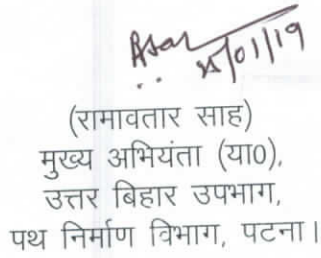 01/19
(रामावतार साह)
मुख्य अभियंता (या0),
उत्तर बिहार उपभाग,
पथ निर्माण विभाग, पटना।